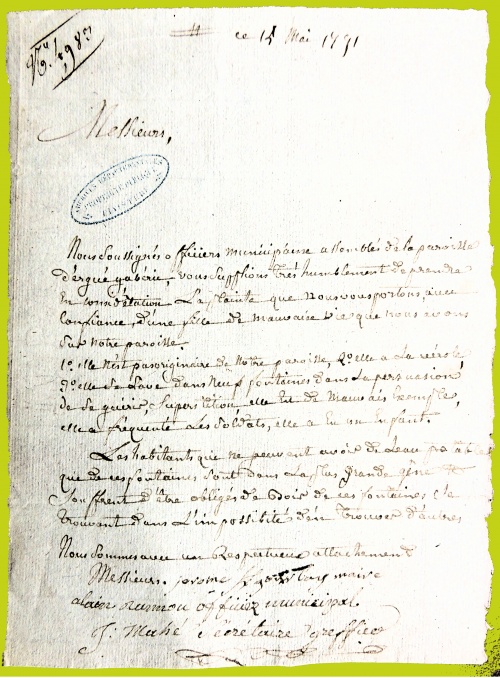 ce 15 Mai 1791
Messieurs,
ARCHIVES DÉPARTEMENTALES
PROPRIÉTÉ PUBLIQUE
FINISTÈRE
Nous Soussignés officiers municipaux assemblés de la paroisse
d'ergué gaberic, vous Supplions très humblement de prendre
En considération La plainte que nous vous portons, avec
Confiance, d'une fille de mauvaise vie que nous avons
Sur notre paroisse.
1º. elle n'est pas originaire de Notre paroisse, 2º. elle a La vérole,
3º. elle Se Lave dans Neuf fontaines dans La persuasion
de Se guérir, Superstition, elle Est de Mauvais Exemple,
elle a fréquenté Les Soldats, elle a Eu un Enfant.
Les habitants que ne peuvent avoir de Leau
que de ces fontaines Sont dans La plus grande gêne
Souffrent d'être obligés de Boir de ces fontaines
trouvant dans L'impossibilité d'en trouver d'autres
Nous Sommes avec un Respectueux attachement
Messieurs. jerome maire
alain officier municipal
J: Mahé Secrétaire greffier